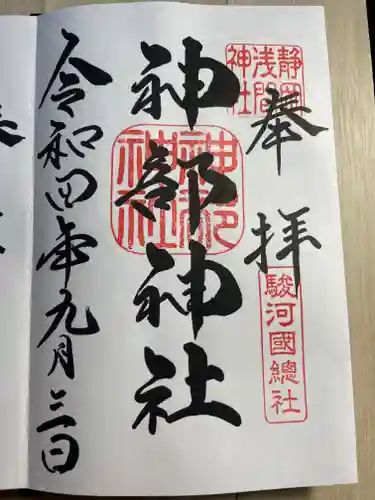 静岡
浅間
神社
奉拝
駿河國總社
神部神社
神部
神社
令和四年九月三日